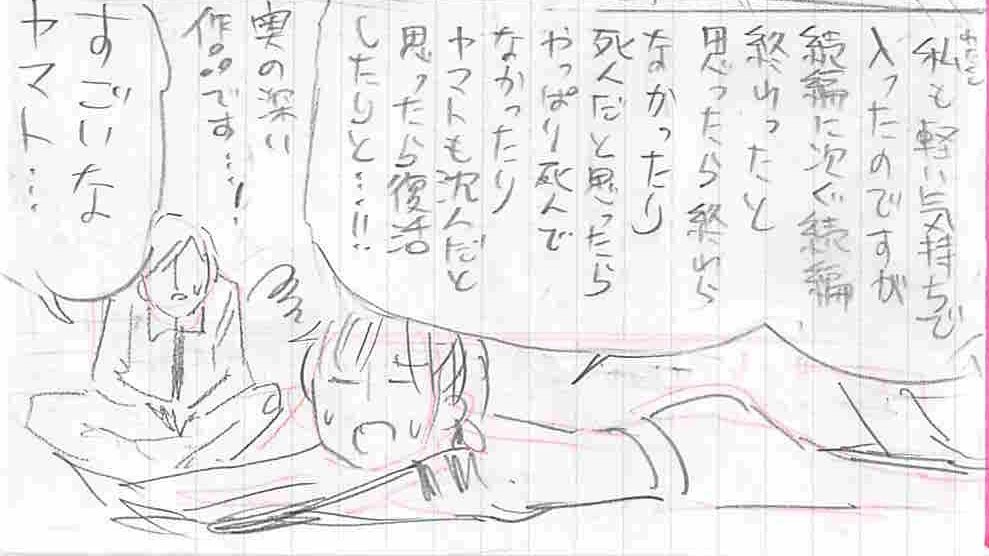 私も軽い気持ちで
わたくし
入ったのですが
続編に次ぐ続編
終わったと
思ったら終わら
なかったり
死んだと思ったら
やっぱり死んで
なかったり
ヤマトも沈んだと
思ったら復活
したりと…!!
奥の深い
作品です…!
すごいな
ヤマト…